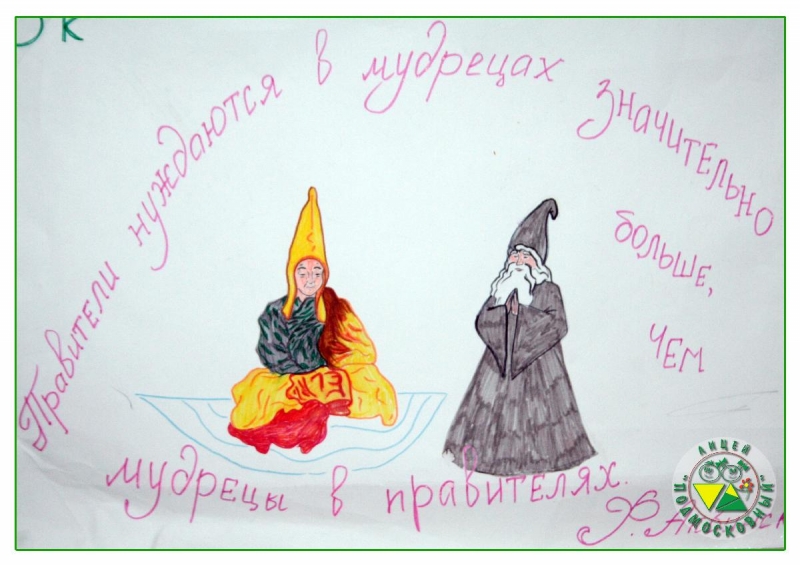 К
Правители нуждаются в мудрецах значительно
больше,
чем
мудрецы в правителях.
ЛИЦЕЙ
"ПОДМОСКОВНЫЙ"